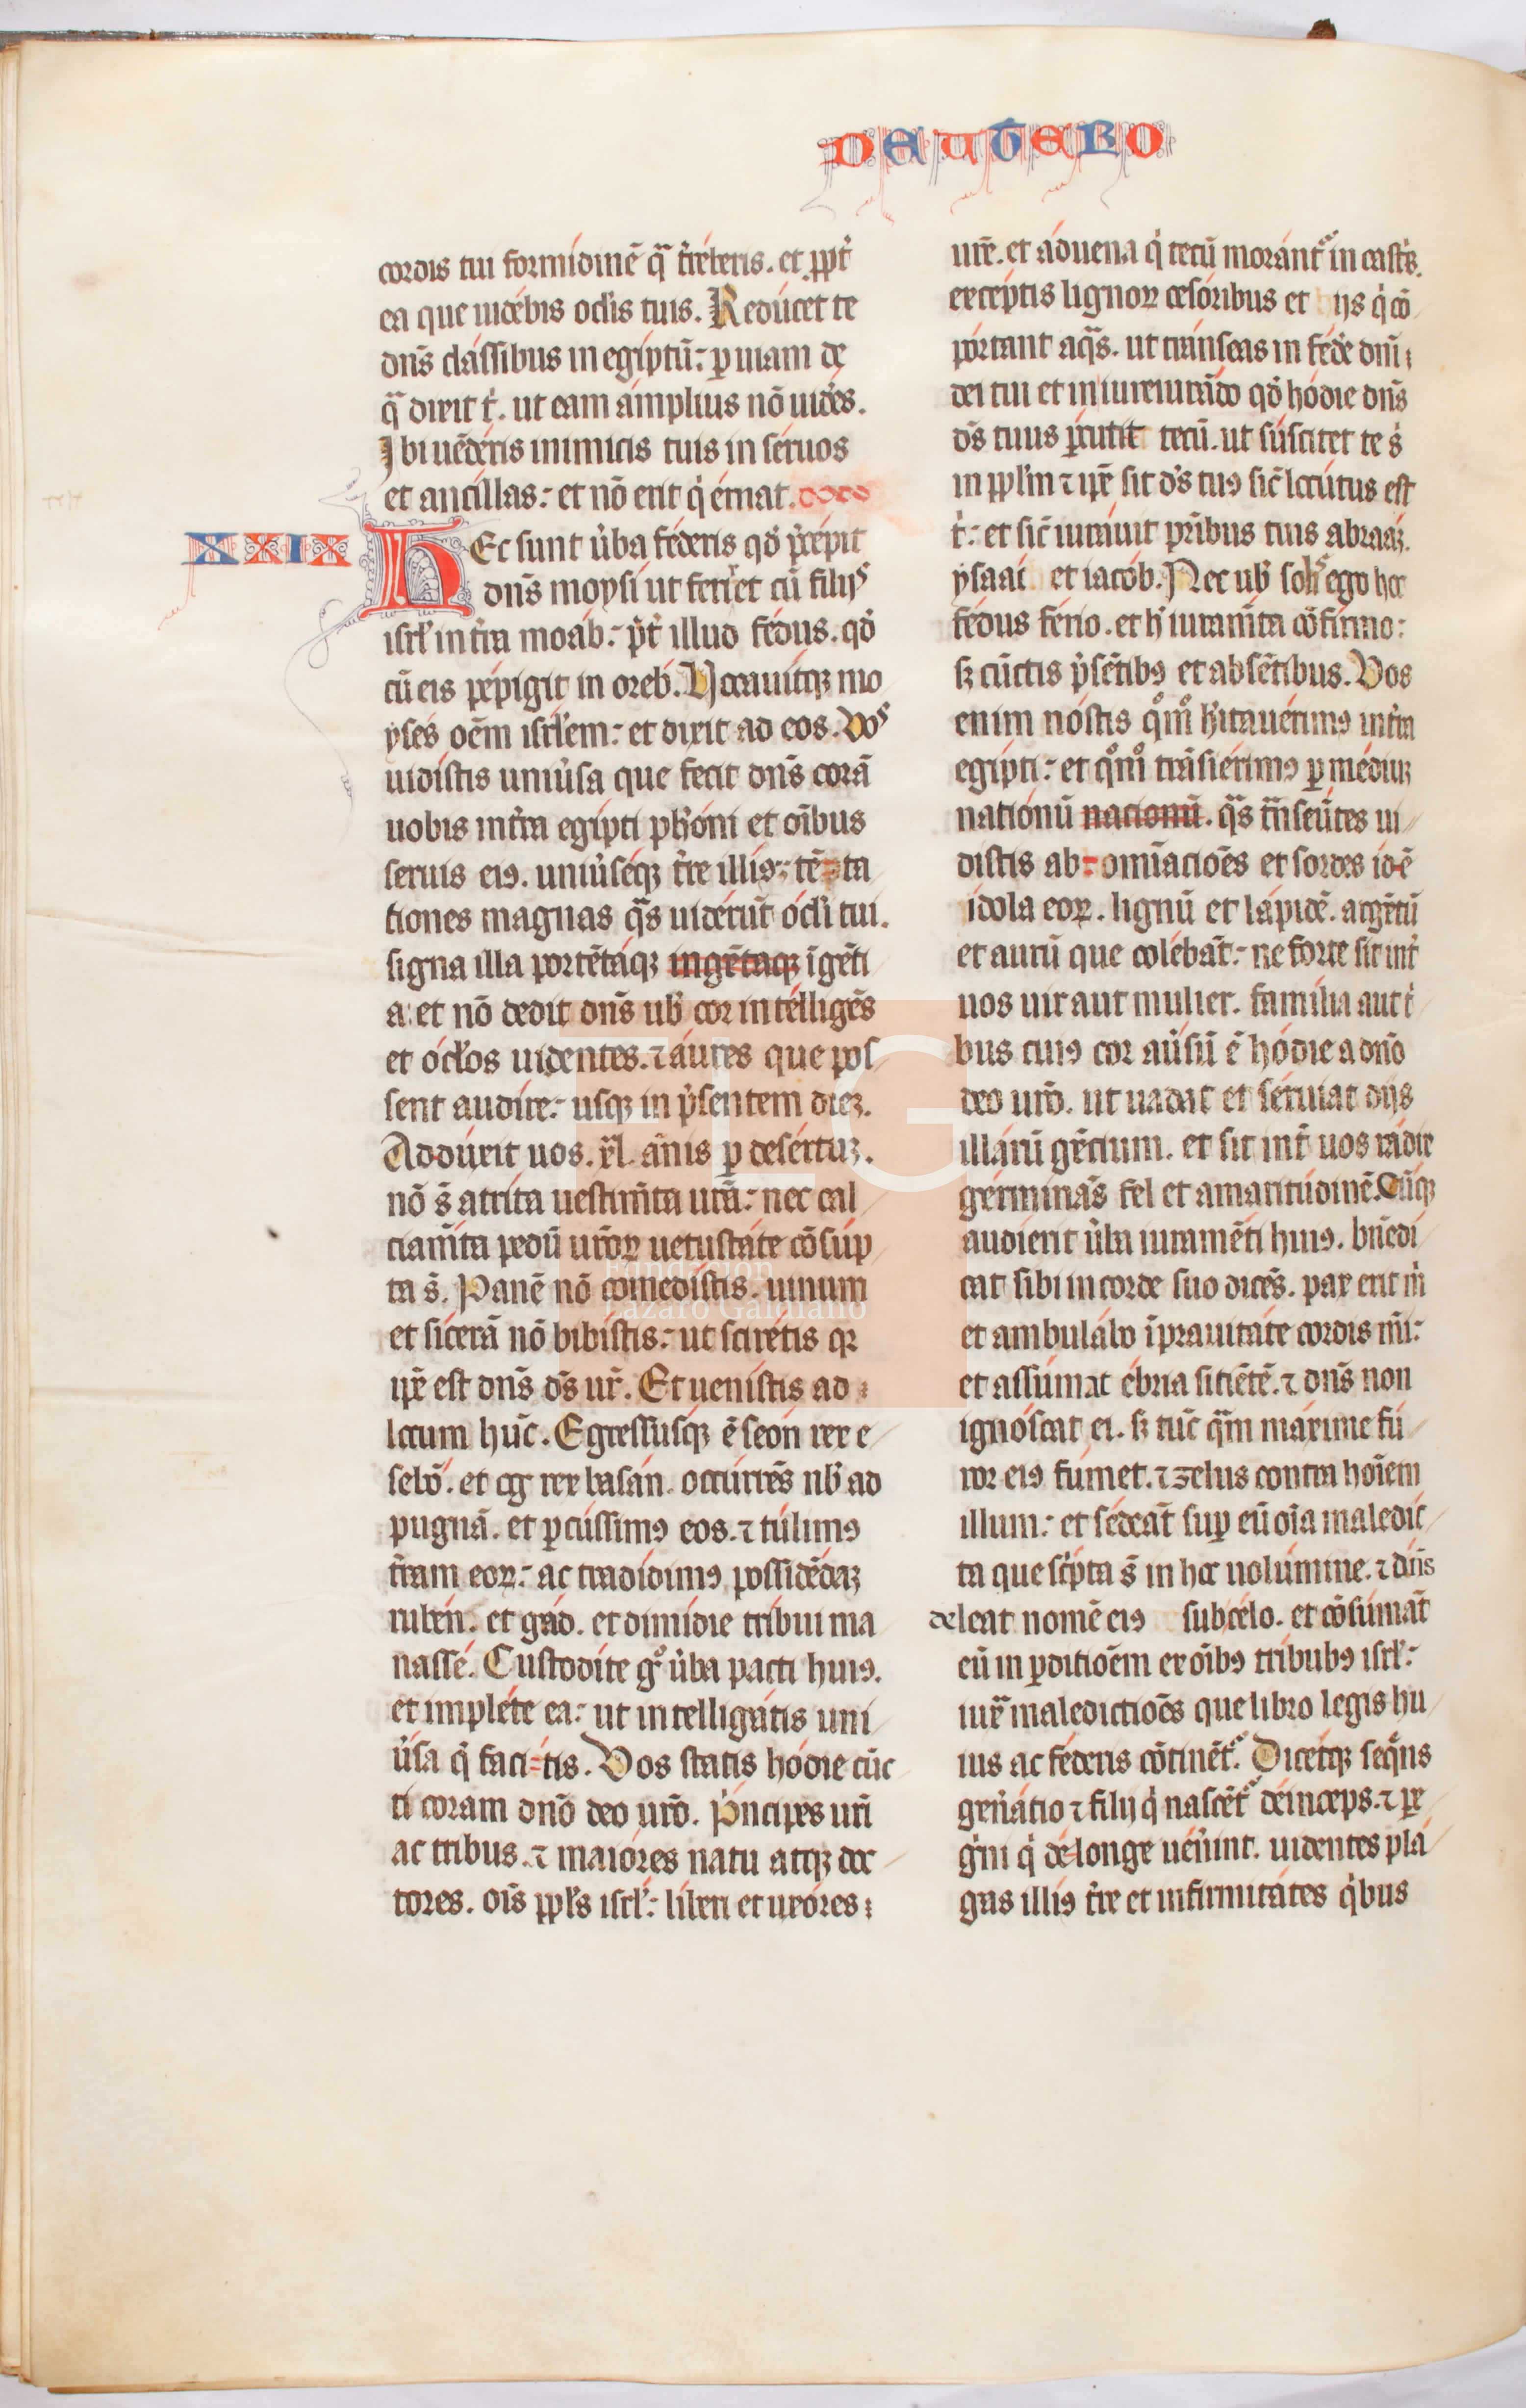 DEUTERO
cordis tui formidinē q̄ t̄rēberis. et ꝓpt̄
ea que uidebis oclīs tuis. Reducet te
dn̄s classibus in egiptū: ꝑ uiam de
q̄ dixit t̄. ut eam amplius nō uides.
Ibi uēderis inimicis tuis in seruos
et ancillas: et nō erit qͥ emat.
XXIX
Hec sunt ūba federis qd̄ p̄cepit
dn̄s moysi ut feriret cū filijs
isrl̄ in t̄ra moab: p̄t̄ illud fedus. qd̄
cū eis pepigit in oreb. Uocauitqꝫ mo
yses oēm isrl̄em: et dixit ad eos. Uos
uidistis uniūsa que fecit dn̄s corā
uobis in t̄ra egipti ph̄oni et oībus
seruis eiꝰ. uniūseqꝫ t̄re illiꝰ: tē-ta
tiones magnas q̄s uiderūt ocl̄i tui.
signa illa portētaqꝫ ingētaqꝫ īgēti
a: et nō dedit dn̄s ub̄ cor intelligēs
et ocl̄os uidentes. ⁊ aures que pos
sent audire: usqꝫ in p̄sentem dieꝫ.
Adduxit uos. xl. ānis ꝑ desertuꝫ.
nō s̄ atrita uestim̄ta ur̄a: nec cal
ciam̄ta pedū ur̄oꝝ uetustate cōsūp
ta s̄. Panē nō comedistis. uinum
et sicerā nō bibistis: ut sciretis qꝛ
ip̄e est dn̄s ds̄ ur̄. Et uenistis ad
locum hūc. Egressusqꝫ ē seon rex e
sebō. et og rex basan. occurrēs nb̄ ad
pugnā. et ꝑcussimꝰ eos. ⁊ tulimꝰ
t̄ram eoꝝ: ac tradidimꝰ possidēdaꝫ
ruben. et gad. et dimidie tribui ma
nasse. Custodite gͦ ūba pacti huiꝰ.
et implete ea: ut intelligatis uni
ūsa qͥ faci-tis. Uos statis hodie cūc
ti coram dn̄o deo ur̄o. p̄ncipes ur̄i
ac tribus. ⁊ maiores natu atqꝫ doc
tores. oīs ppl̄s isrl̄: liberi et uxores
ur̄e. et aduena qͥ tecū morantͬ in castͥs.
exceptis lignoꝝ cesoribus et ijs qͥ cō
portant aq̄s. ut transeas in fede dn̄i
dei tui et in iureiurādo qd̄ hodie dn̄s
ds̄ tuus ꝑcutit tecū. ut suscitet te sͥ
in ppl̄m ⁊ ip̄e sit ds̄ tuꝰ sic̄ locutus est
t̄: et sic̄ iurauit pr̄ibus tuis abraaꝫ.
ysaac et iacob. Nec ub̄ solis ego hoc
fedus ferio. et h̄ iuram̄ta cōfirmo:
sꝫ cūctis p̄sētibꝰ et absētibus. Uos
enim nostis qͦmͦ h̄itauerimꝰ in t̄ra
egipti: et qͦmͦ trāsierimꝰ ꝑ mediuꝫ
nationū nacionū. q̄s tn̄seūtes ui
distis ab-omīacioēs et sordes id-ē
idola eoꝝ. lignū et lapidē. argētū
et aurū que colebāt: ne forte sit int̄
uos uir aut mulier. familia aut tͥ
bus cuiꝰ cor aūsū ē hodie a dn̄o
deo ur̄o. ut uadat et seruiat dijs
illarū gētium. et sit int̄ uos radix
germinās fel et amaritudinē. Cūqꝫ
audierit ūba iuramēti huiꝰ. bn̄edi
cat sibi in corde suo dicēs. pax erit m̄
et ambulabo ī prauitate cordis mī:
et assumat ebria sitiētē. ⁊ dn̄s non
ignoscat ei. sꝫ tūc q̄m maxime fu
ror eiꝰ fumet. ⁊ zelus contra hoīem
illum: et sedeāt suꝑ eū oīa maledic
ta que sc̄pta s̄ in hoc uolumine. ⁊ dn̄s
deleat nomē eiꝰ sub celo. et cōsumat
eū in ꝑditioēm ex oībꝰ tribubꝰ isrl̄:
iux̄ maledictioēs que libro legis hu
ius ac federis cōtinētͬ. Dicetqꝫ seq̄ns
gen̄atio ⁊ filij qͥ nascētͬ deinceps. ⁊ pe
gͥni qͥ de longe uēūint. uidentes pla
gas illiꝰ t̄re et infirmitates qͥbus